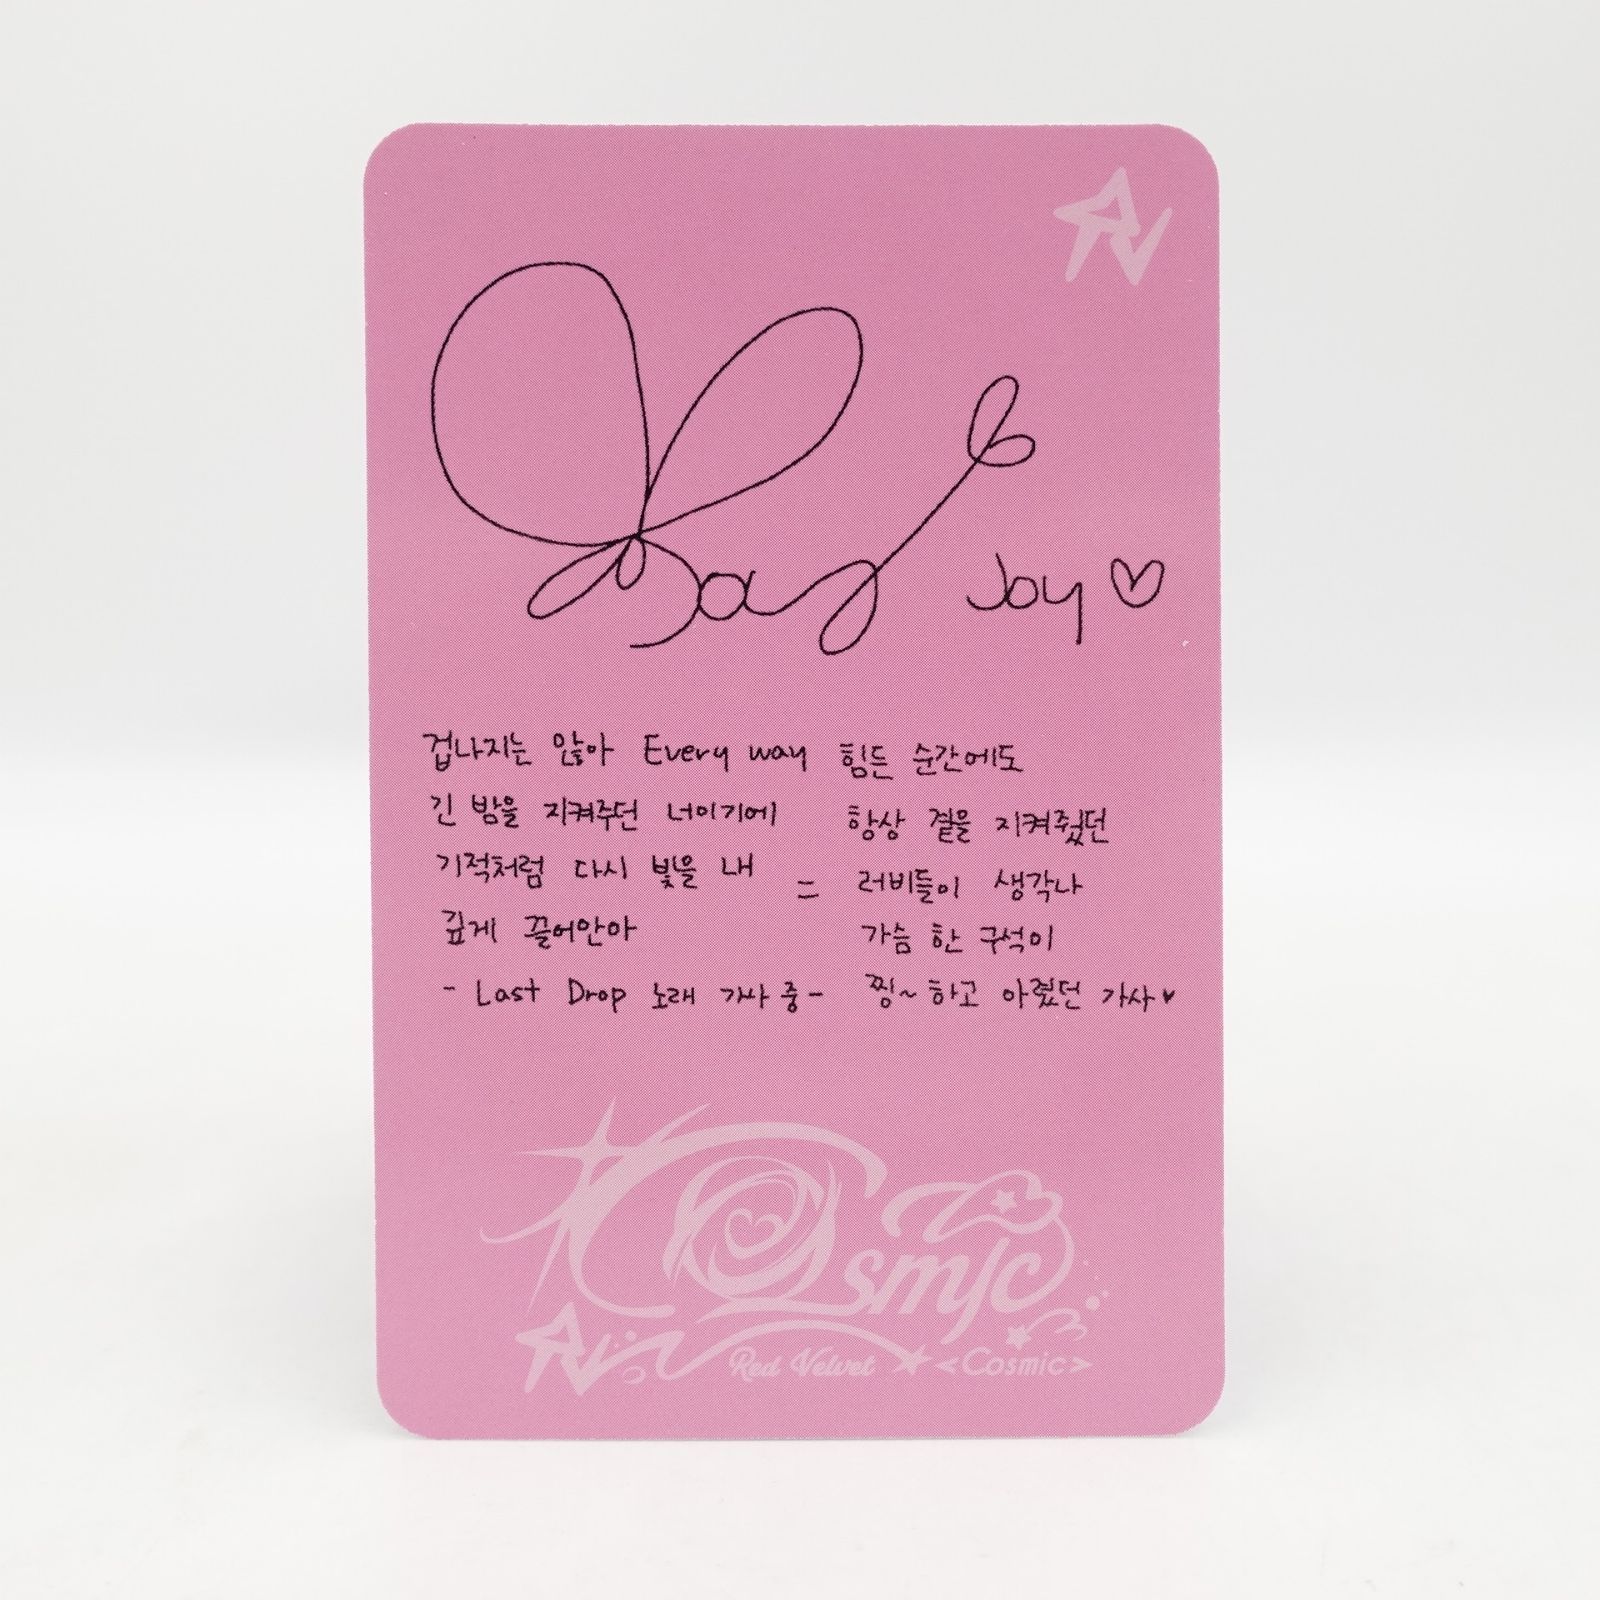 Joy ♡
겁나지는 않아 Every way
긴 밤을 지켜주던 너이기에
기적처럼 다시 빛을 내
깊게 끌어안아
- Last Drop 노래 가사 중 -
=
힘든 순간에도
항상 곁을 지켜줬던
러비들이 생각나
가슴 한 구석이
찡~하고 아렸던 가사♥
Cosmic
RV Red Velvet ★ <Cosmic>